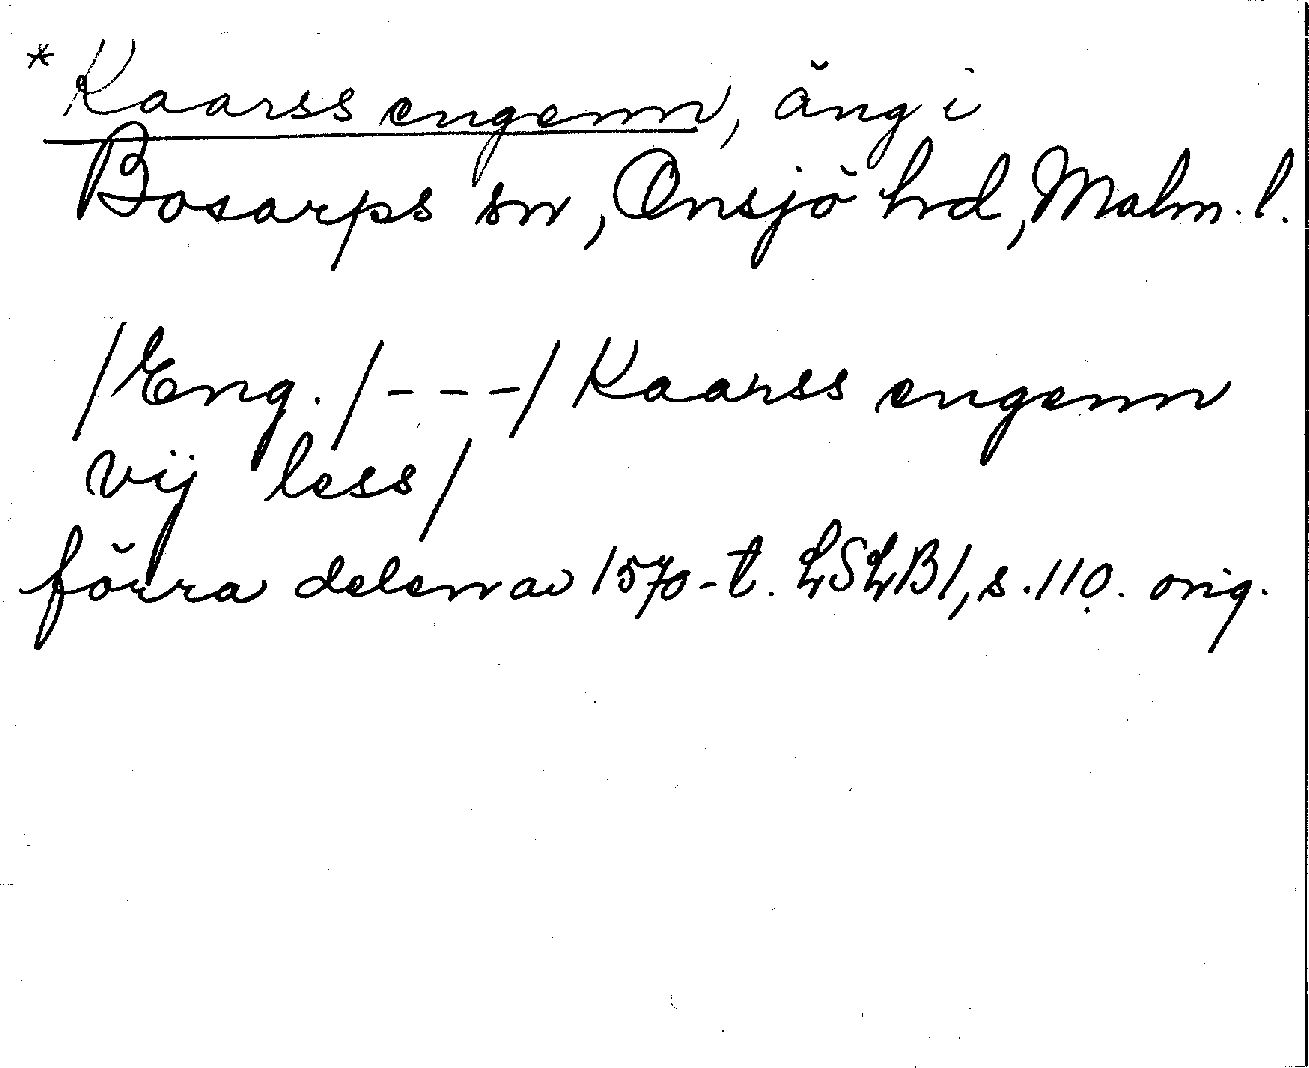 *Kaarss engenn, äng i
Bosarps sn, Onsjö hrd, Malm. l.
/Eng. /---/ Kaarss engenn
vij less/
förra delen av 1570-t. LSLB1, s. 110. orig.